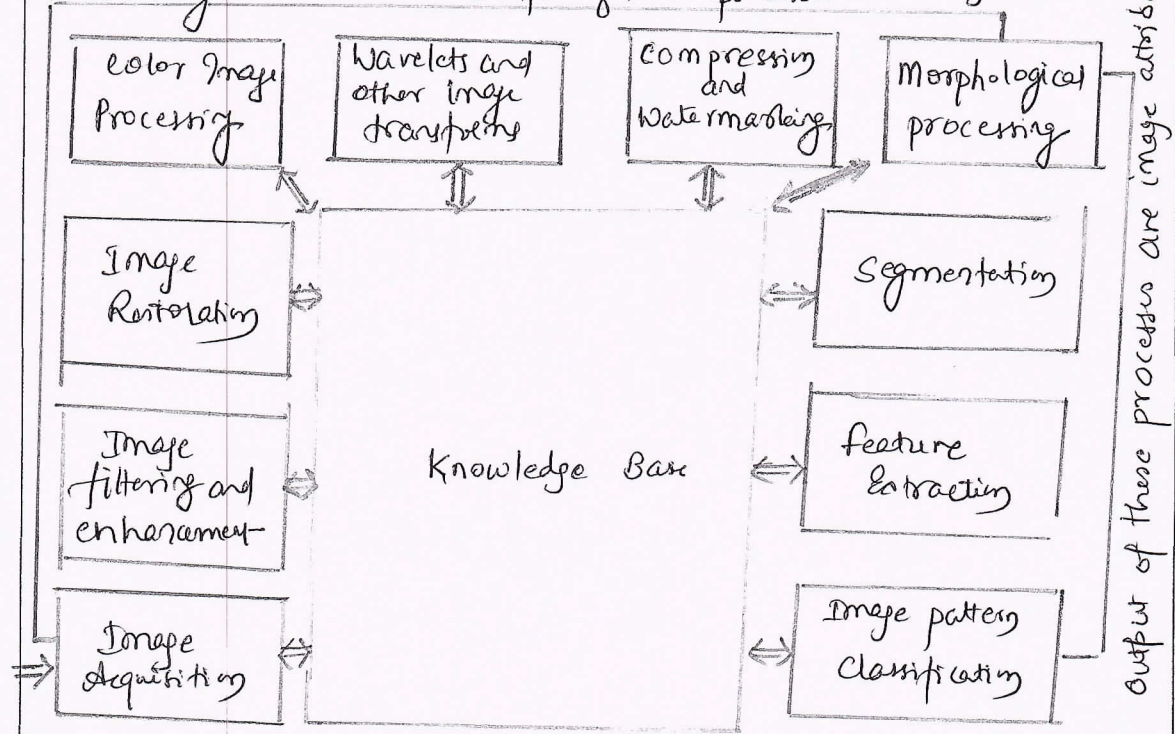 Color Image
Processing
Wavelets and
other image
transforms
Compression
and
Watermarking
Morphological
processing
Image
Restoration
Segmentation
Image
filtering and
enhancement
Knowledge Base
feature
Extraction
Image
Acquisition
Image pattern
Classification
Output of these processes are image